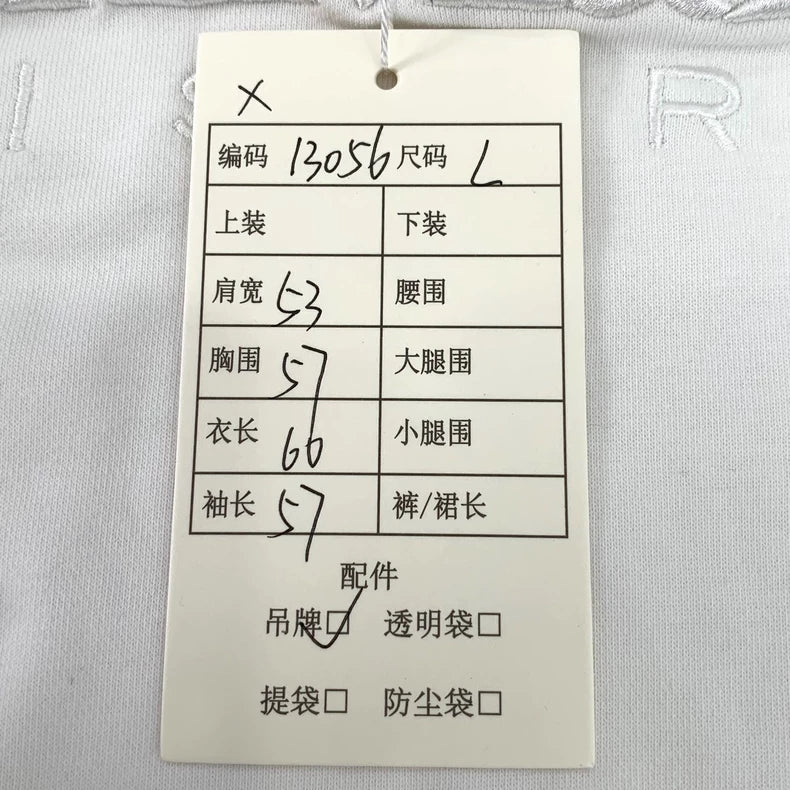 I S R
X
编码 13056 尺码 L
上装 下装
肩宽 53 腰围
胸围 57 大腿围
衣长 66 小腿围
袖长 57 裤/裙长
配件
吊牌☑ 透明袋□
提袋□ 防尘袋□